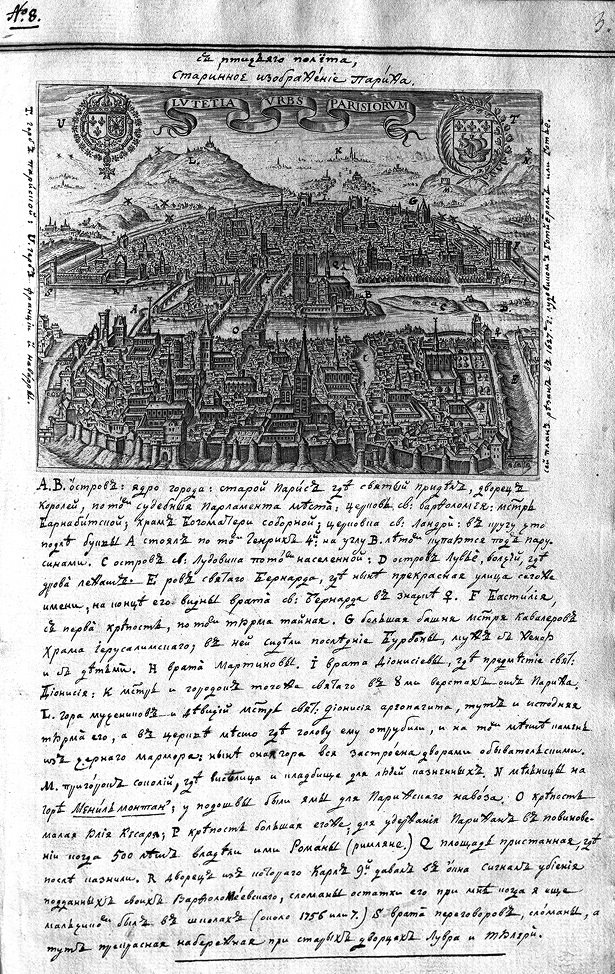 № 8.
3.
съ птичьяго полёта,
Старинное изображéніе Парижа.
LVTETIA VRBS PARISIORVM
U
T
L
K
G
T. гербъ парижской: U. гербъ франціи и наварры.
сей планъ рѣзанъ въ
A. B. островъ: ядро города: старой Парисъ гдѣ святый придѣлъ, дворецъ
королей, потомъ судебныя Парламента мѣста, церковь св: варѳоломія: мстрь
Барнабитской; храмъ Богоматери соборной; церковка св: Ландри: въ кругу что
подлѣ буквы А стоялъ потомъ Генрихъ 4й на углу B. лѣтомъ купаются подъ пару-
синами. C островъ св: Лудовика потомъ населенной: D островъ Лувьѐ, болшій, гдѣ
дрова лежатъ. E ровъ святаго Бернарда, гдѣ нынѣ прекрасная улица сегоже
имени; на концѣ его видны врата св: Бернарда въ знакѣ ♀. F Бастилія,
съ перва крѣпость, потомъ тюрма тайная. G большая башня мстря кавалеровъ
Храма Іерусалимскаго; въ ней сидѣли послѣдніе Бурбоны, мужъ съ женою
и съ дѣтьми. H врата Мартиновы. I врата Діонисіевы, гдѣ предмѣстіе свят:
Діонисія: K мстрь и городокъ тогоже святаго въ 8ми верстахъ отъ Парижа.
L. гора мучениковъ и дѣвичій мстрь свят: Діонисія ареопагита, тутъ и исподняя
тюрма его, а въ церквѣ мѣсто гдѣ голову ему отрубили, и на томъ мѣстѣ камень
изъ чернаго мармора: нынѣ оная гора вся застроена дворами обывательскими.
M. пригóрокъ соколій, гдѣ висѣлица и кладбище для людей казненныхъ. N мѣльницы на
горѣ Менильмонтанъ; у подошвы были ямы для Парижскаго навоза. O крѣпость
малая Юлія Кесаря; P крѣпость большая егоже, для удержанія Парижанъ въ повинове-
ніи когда 500 лѣтъ владѣли ими Романы (римляне.) Q площадь пристанная, гдѣ
послѣ казнили. R дворецъ изъ котораго Карлъ 9й давалъ въ окна сигналъ убіенія
подданныхъ своихъ Варѳоломéевскаго, сломаны остатки его при мнѣ когда я еще
мальчикомъ былъ въ школахъ (около 1756 или 7.) S врата переговоровъ, сломаны, а
тутъ прекрасная набережная при старыхъ дворцахъ Лувра и Тюлери.